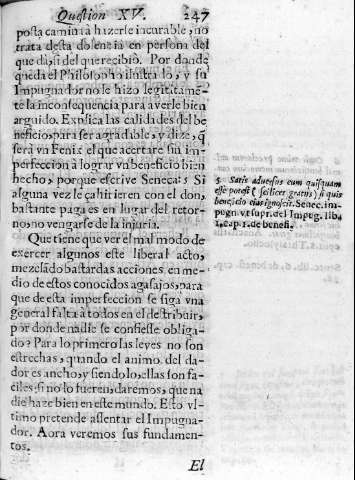 Question XV. 247
posta camina à hizerle incurable, no
trata desta dolencia en persona del
que dà, si del que recibiò. Por donde
queda el Philosopho ilustrado, y su
Impugnador no le hizo legitimamẽ-
te la inconsequencia para averle bien
arguido. Explica las calidades del be
neficio, para ser agradable, y dize, q̃
serà vn Fenix el que acertare sin im-
perfeccion à lograr vn beneficio bien
hecho, porque escrive Seneca: 5 Si
alguna vez le çahirieren con el don,
bastante paga es en lugar del retor-
no, no vengarse de la injuria.
Que tiene que ver el mal modo de
exercer algunos este liberal acto,
mezclãdo bastardas acciones en me-
dio de estos conocidos agasajos, para
que de esta imperfeccion se siga vna
general falta à todos en el destribuir,
por donde nadie se confiesse obliga-
do? Para lo primero las leyes no son
estrechas, quando el animo del da-
dor es ancho, y siendolo, ellas son fa-
ciles: si no lo fueren, daremos, que na
die haze bien en este mundo. Esto vl-
timo pretende assentar el Impugna-
dor. Aora veremos sus fundamen-
tos.
El
5 Satis adversus eum quisquam
esse potest ( scilicet gratus) si quis
beneficio eius ignoscit. Senec. im-
pugn. vt supr. del Impug. lib.
1. cap. 1. de benefi.